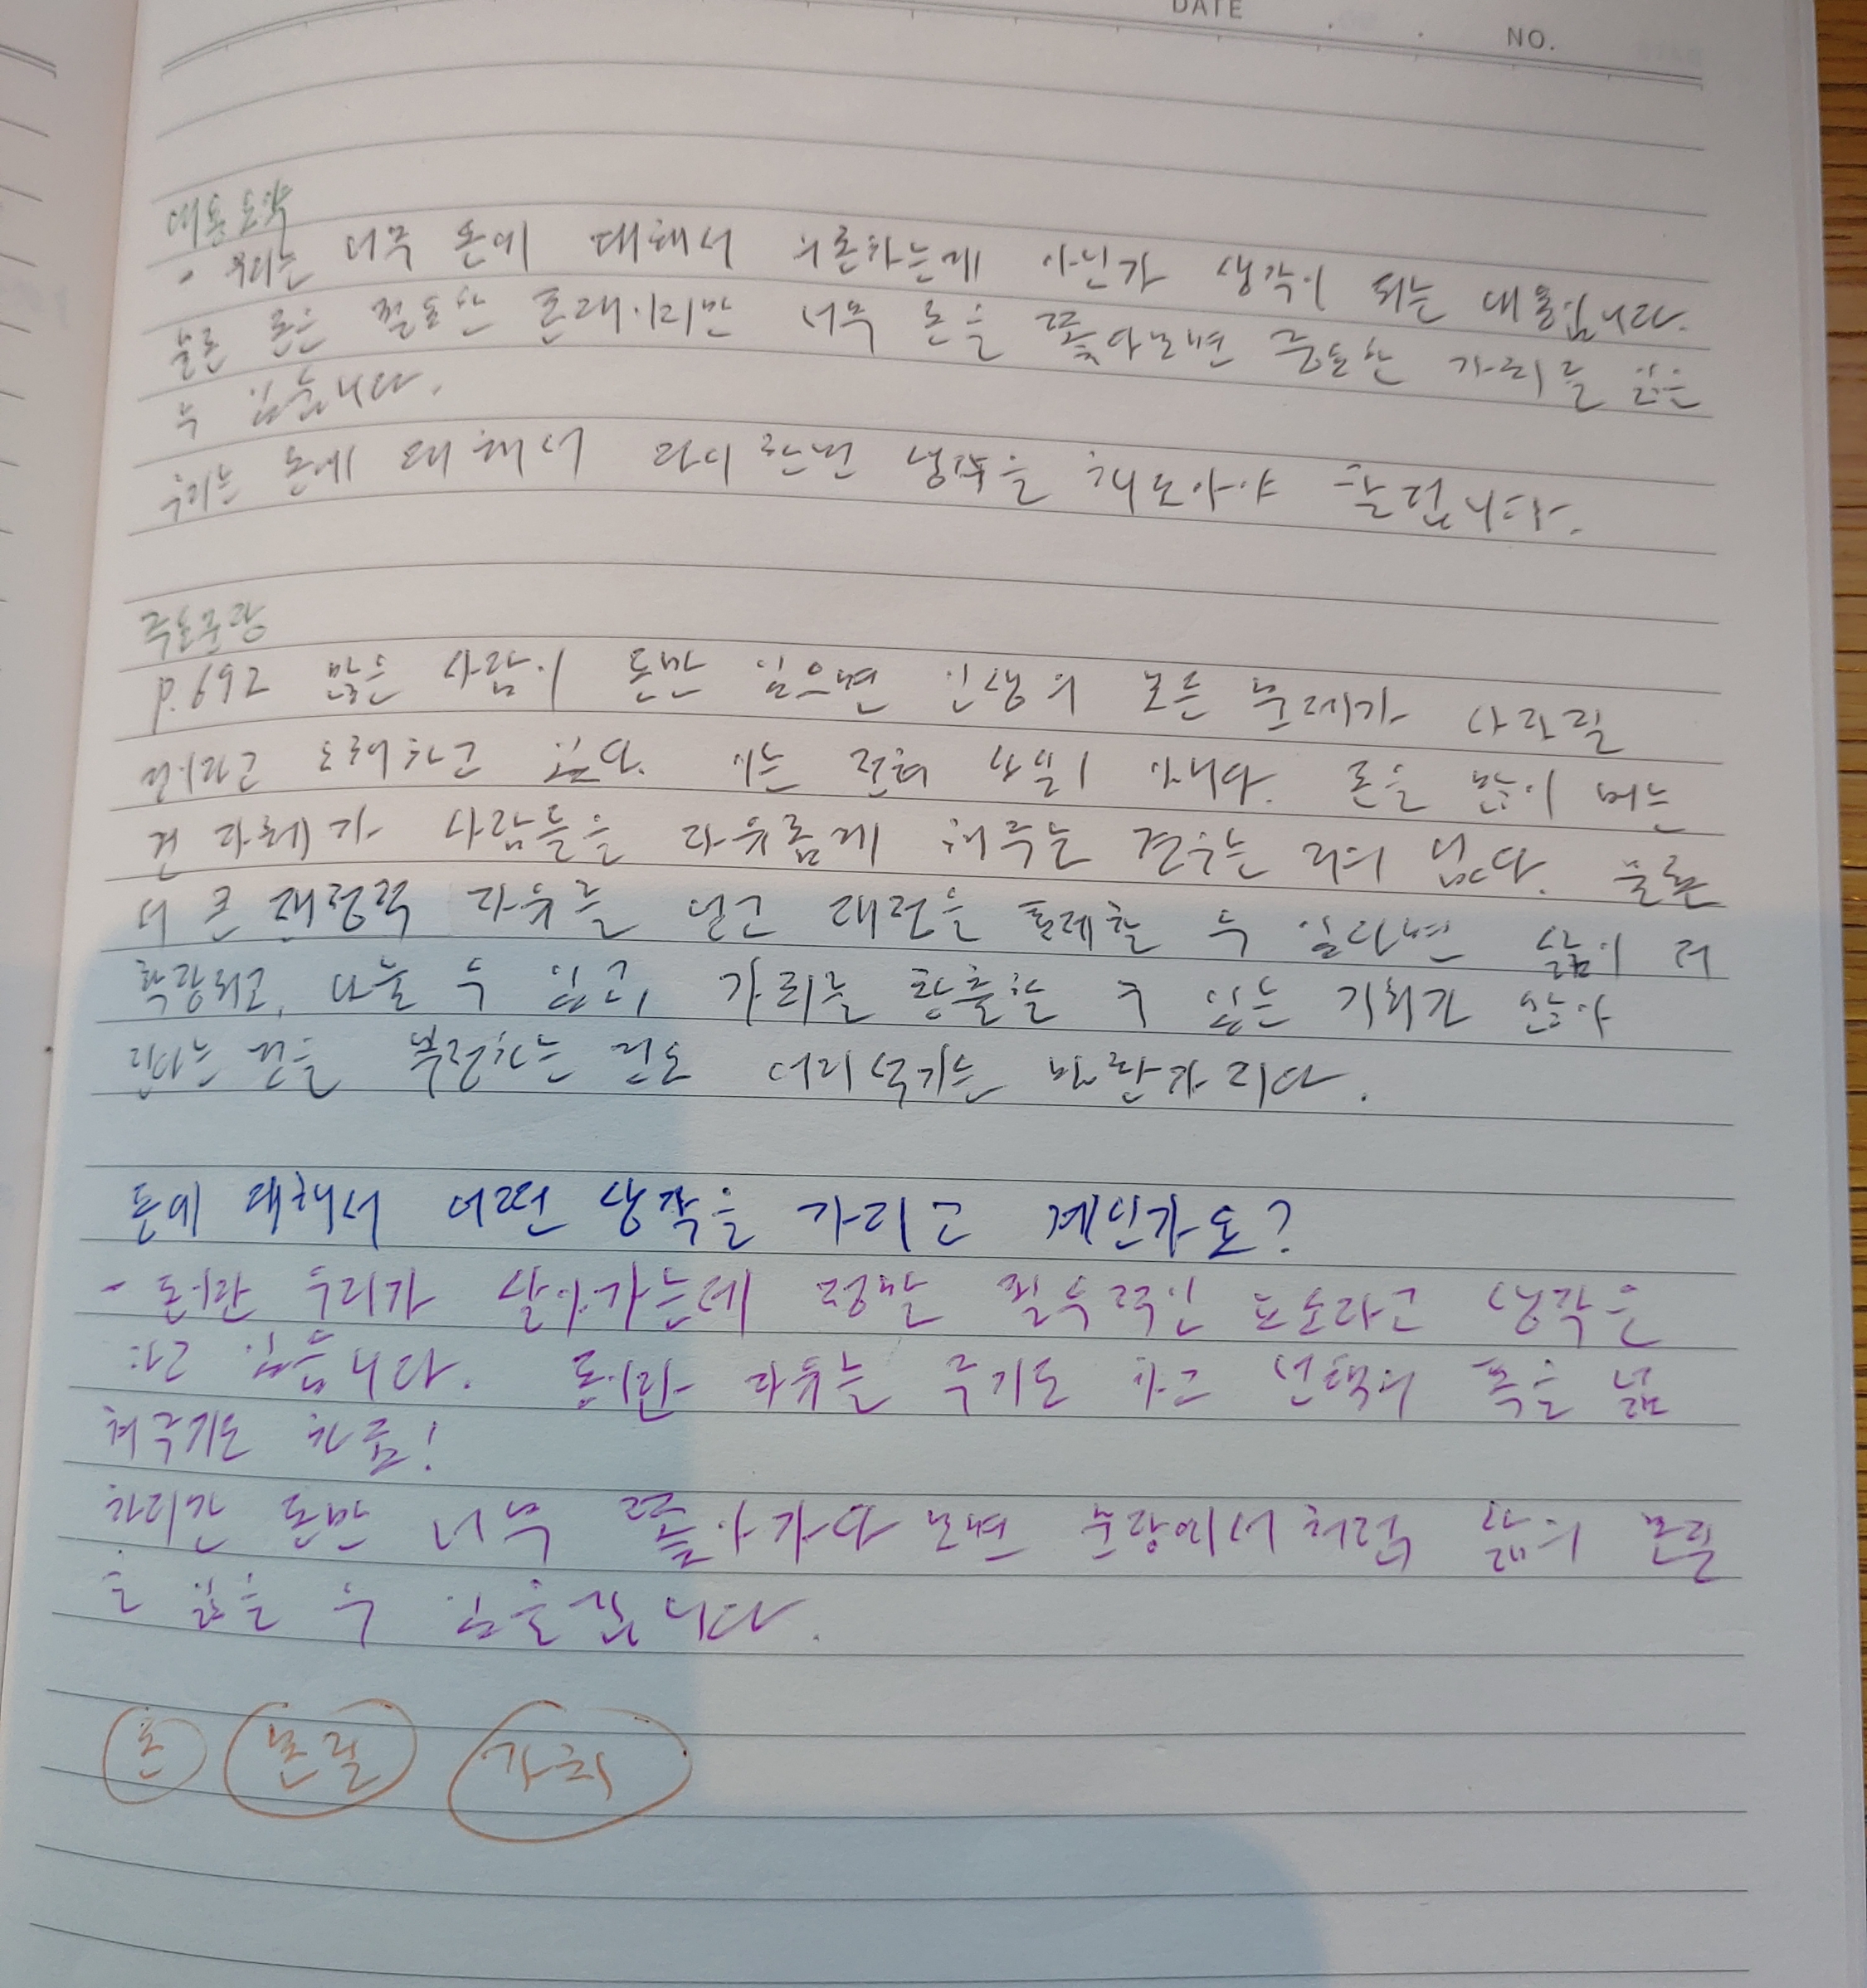 DATE . . NO.
내용요약
- 우리는 너무 돈에 대해서 의존하는게 아닌가 생각이 되는 내용입니다.
물론 돈은 필요한 존재이지만 너무 돈을 쫓아보면 중요한 가치를 잃을
수 있습니다.
우리는 돈에 대해서 다시한번 생각을 해보아야 할겁니다.
주요문장
p.692 많은 사람이 돈만 있으면 인생의 모든 문제가 사라질
거라고 오해하고 있다. 이는 전혀 사실이 아니다. 돈을 많이 버는
것 자체가 사람들을 자유롭게 해주는 경우는 거의 없다. 물론
더 큰 재정적 자유를 얻고 재정을 통제할 수 있다면 삶이 더
확장되고, 나눌 수 있고, 가치를 창출할 수 있는 기회가 많아
진다는 것을 부정하는 것도 어리석기는 마찬가지다.
돈에 대해서 어떤 생각을 가지고 계신가요?
- 돈이란 우리가 살아가는데 정말 필수적인 요소라고 생각은
하고 있습니다. 돈이란 자유를 주기도 하고 선택의 폭을 넓
혀주기도 하죠!
하지만 돈만 너무 쫓아가다보면 문장에서처럼 삶의 본질
을 잃을 수 있을겁니다.
돈 본질 가치